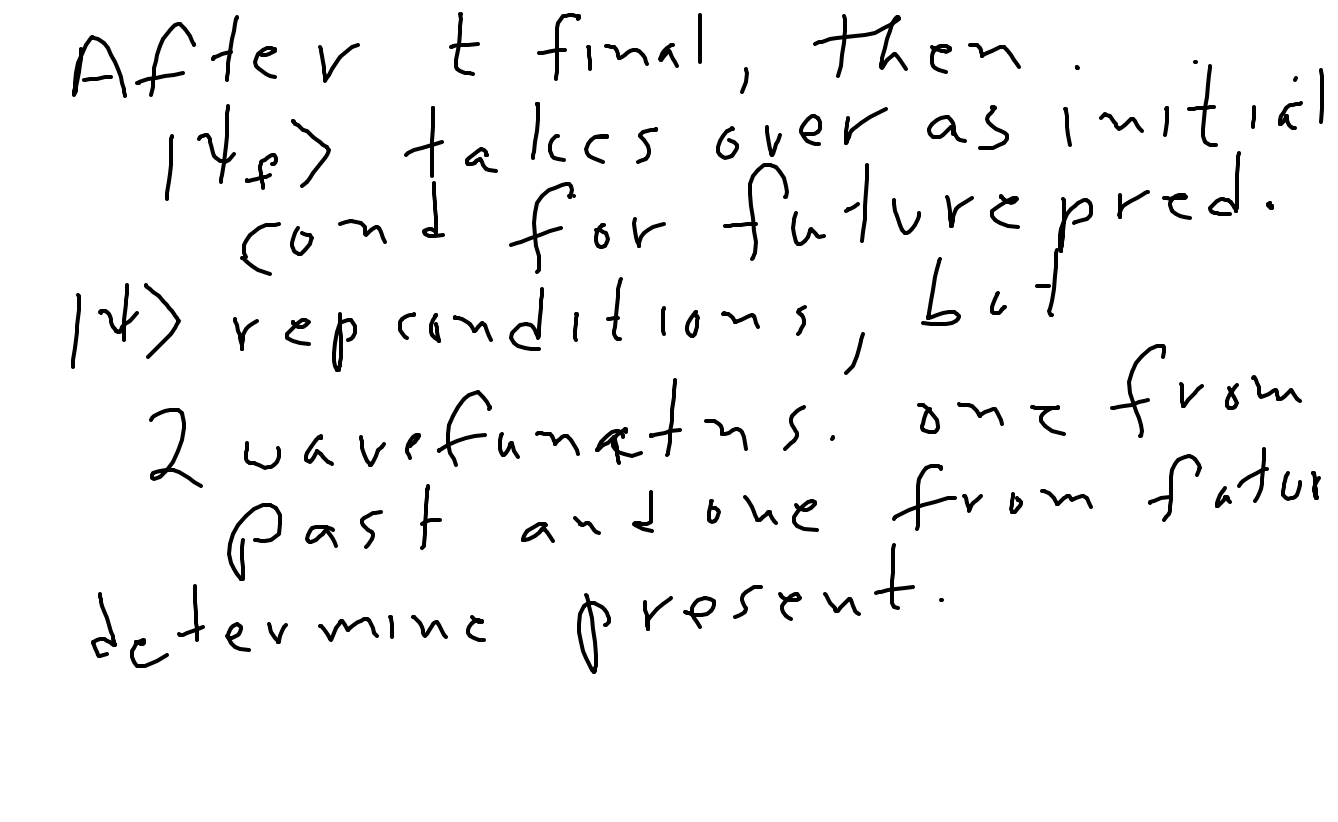 After t final, then
|ψ_f> takes over as initial
cond for future pred.
|ψ> rep conditions, but
2 wavefunctns. one from
past and one from futur
determine present.